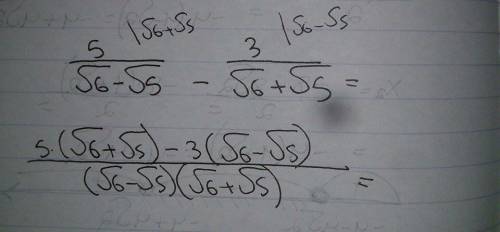 5 |√6+√5 3 |√6-√5
√6-√5 - √6+√5 =
5·(√6+√5)-3(√6-√5)
(√6-√5)(√6+√5) =